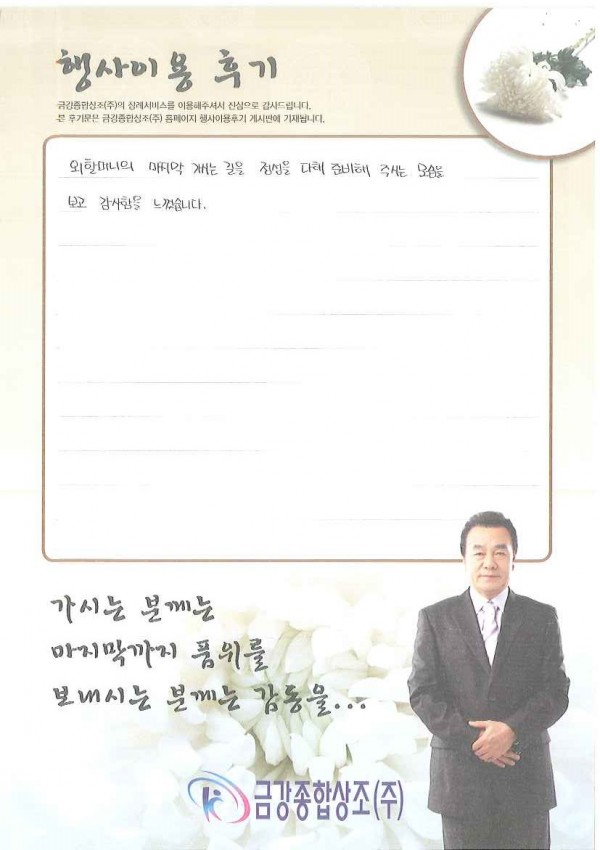 행사이용 후기
금강종합상조(주)의 상례서비스를 이용해주셔서 진심으로 감사드립니다.
본 후기문은 금강종합상조(주) 홈페이지 행사이용후기 게시판에 기재됩니다.
외할머니의 마지막 가시는 길을 정성을 다해 준비해 주시는 모습을
보고 감사함을 느꼈습니다.
가시는 분께는
마지막까지 품위를
보내시는 분께는 감동을...
금강종합상조(주)